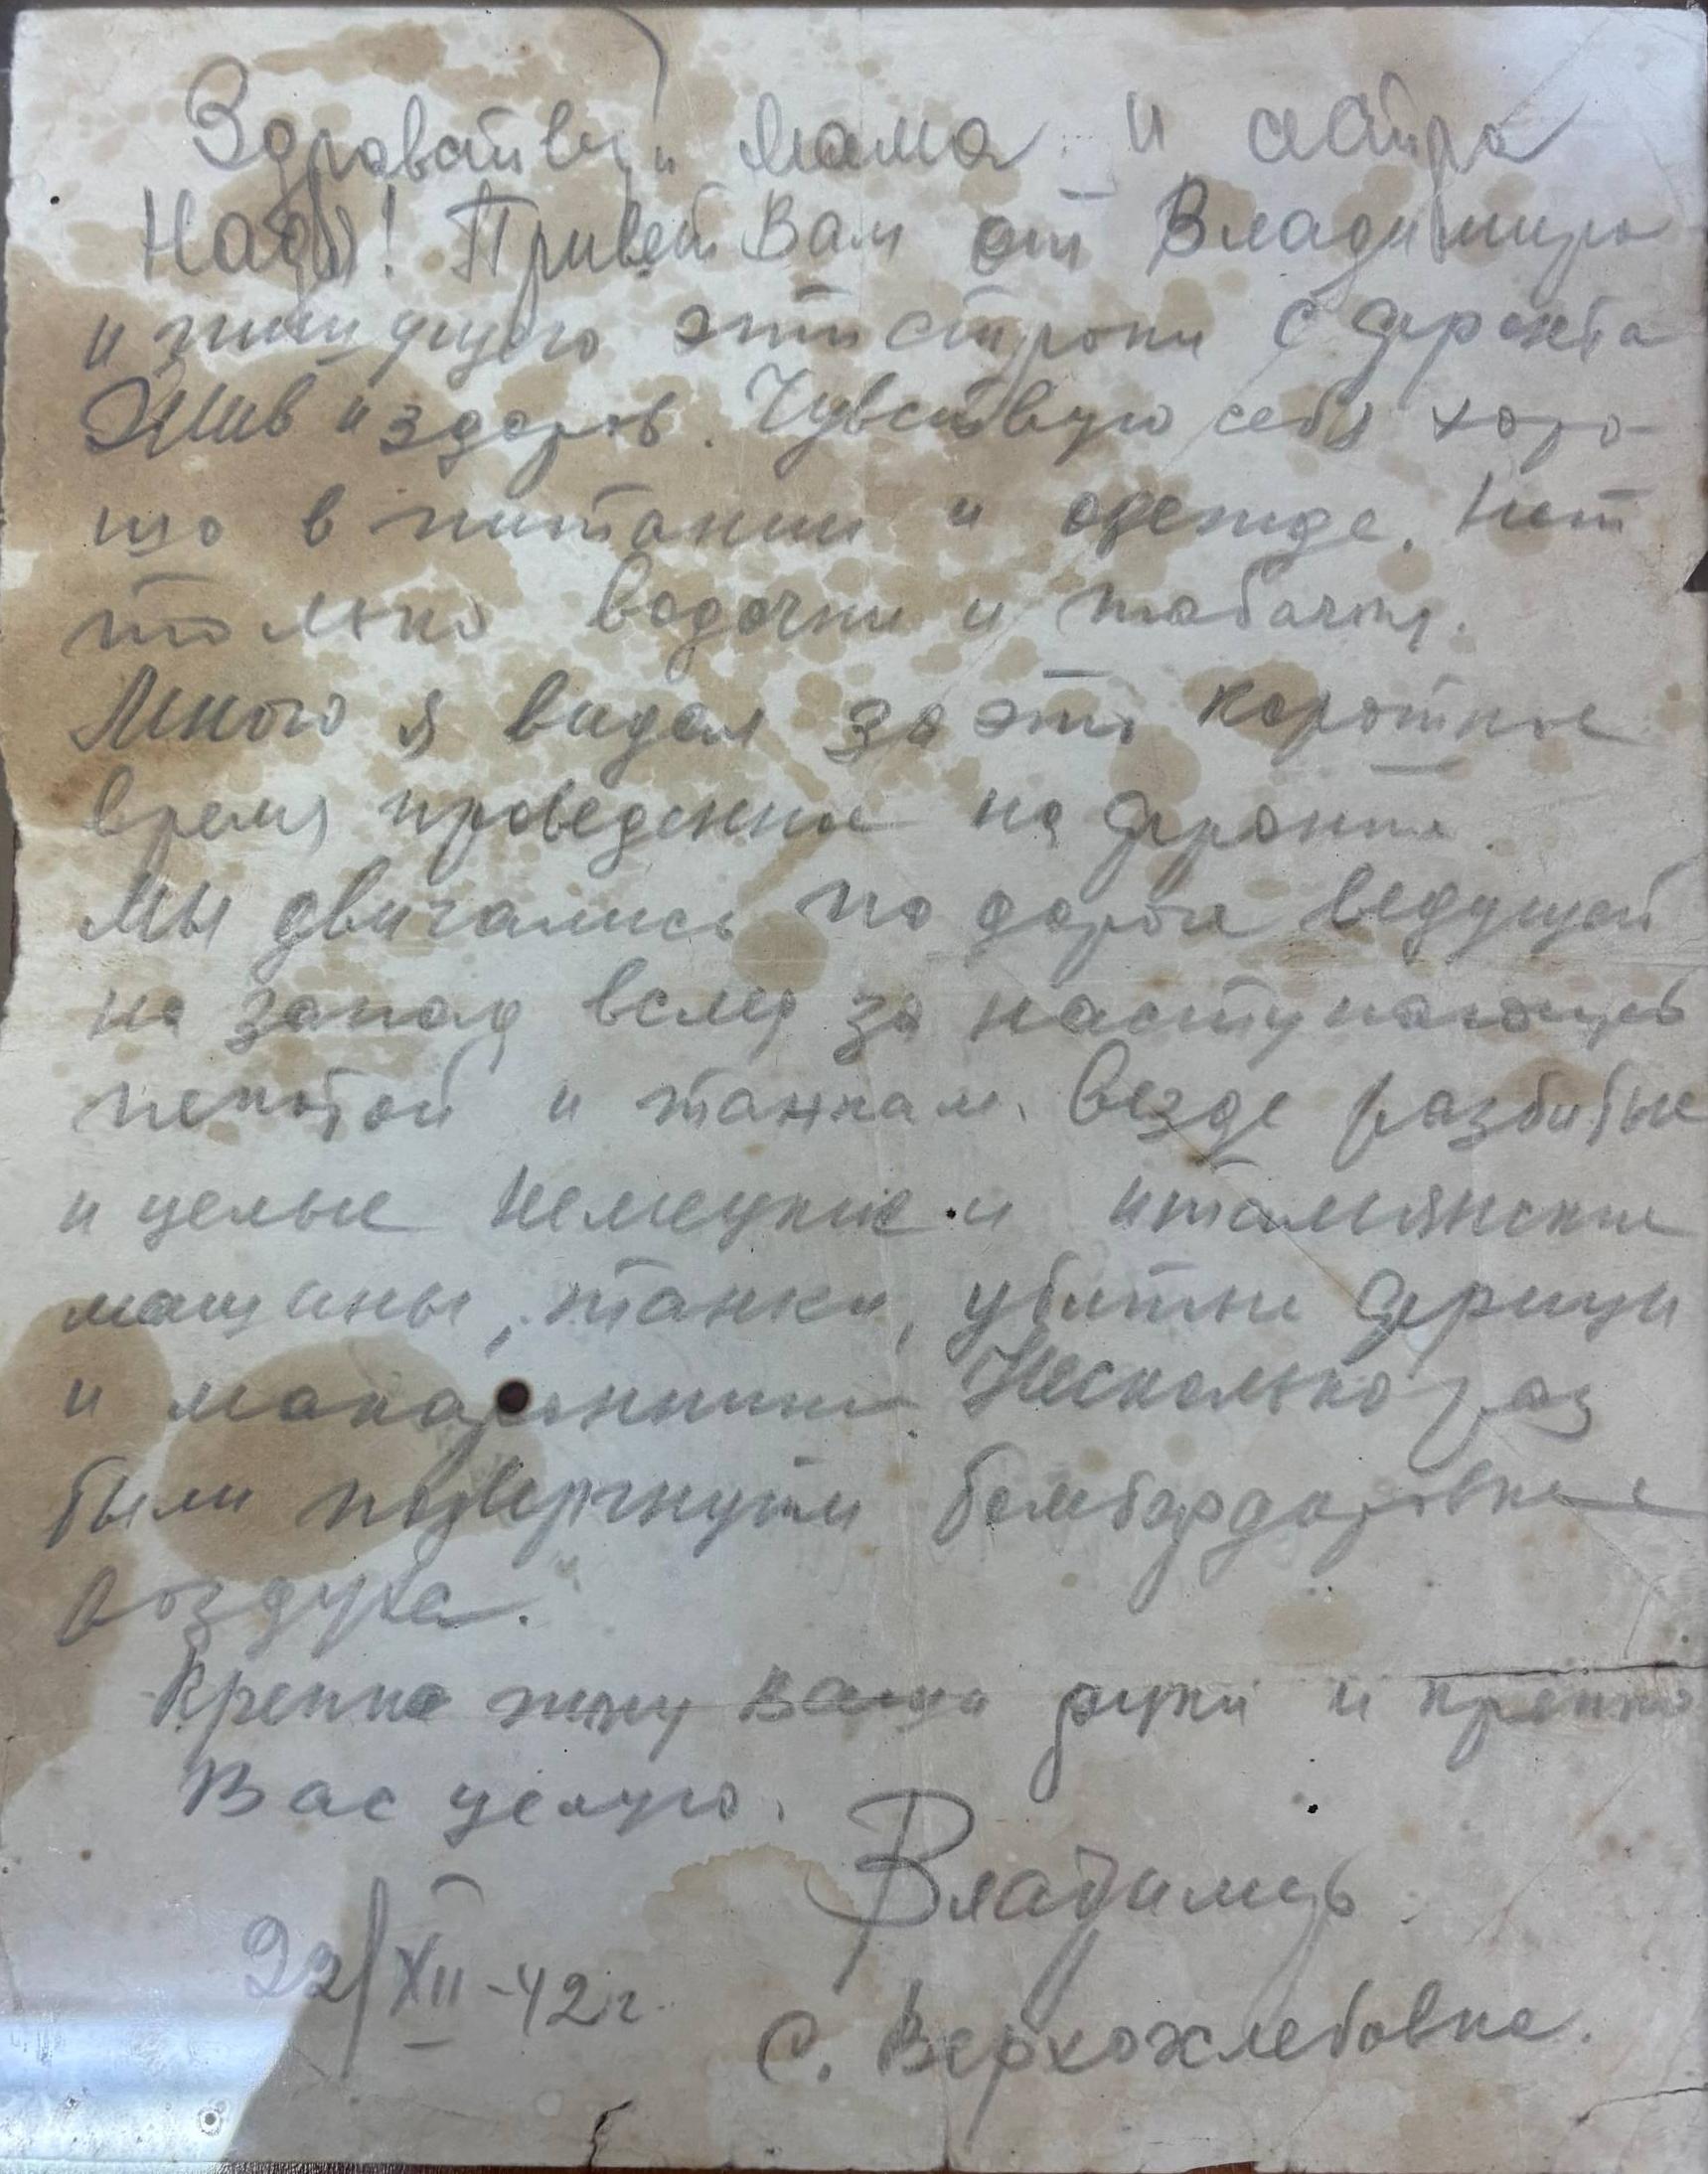 Здравствуй мама и сестра
Надя! Привет Вам от Владимира
и пишущего эти строки с фронта
Жив и здоров. Чувствую себя хоро-
шо в питании и одежде. Нет
только водочки и табачку.
Много я видел за это короткое
время проведенное на фронте.
Мы двигались по дороге ведущей
на запад вслед за наступающей
пехотой и танкам. Везде разбитые
и целые немецкие и итальянские
машины, танки, убитые фрицы
и макаронники. Несколько раз
были подвергнуты бомбардировке с
воздуха.
Крепко жму Ваши руки и крепко
Вас целую.
Владимир
22/XII-42г.
с. Верхохлебовка.